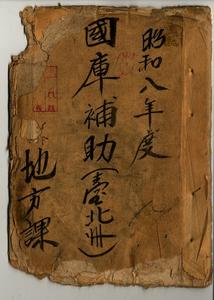 昭和八年度
國庫補助(臺北州)
地方課